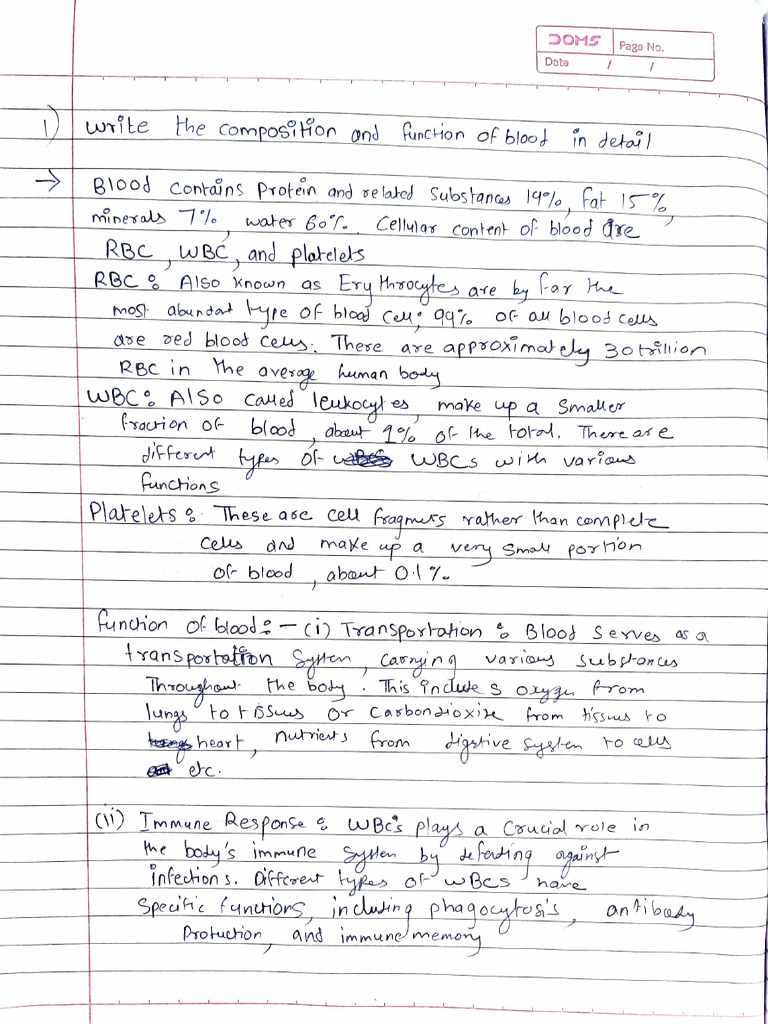 DOMS
Page No.
Date / /
1) Write the composition and function of blood in detail
→ Blood contains protein and related substances 19%, fat 15%,
minerals 7%, water 60%. Cellular content of blood are
RBC, WBC, and platelets
RBC: Also known as Erythrocytes are by far the
most abundat type of blood cell; 99% of all blood cells
are red blood cells. There are approximately 30 trillion
RBC in the average human body
WBC: Also called leukocytes, make up a smaller
fraction of blood, about 1% of the total. There are
different types of WBCs with various
functions
Platelets: These are cell fragmets rather than complete
cells and make up a very small portion
of blood, about 0.1%.
Function of blood: - (i) Transportation: Blood serves as a
transportation system, carrying various substances
Throughout the body. This includes oxygen from
lungs to tissues or carbondioxixe from tissues to
heart, nutrients from digstive system to cells
etc.
(ii) Immune Response: WBC's plays a crucial role in
the body's immune system by defending against
infections. Different types of WBCs have
specific functions, including phagocytosis, antibody
Protuction, and immune memory